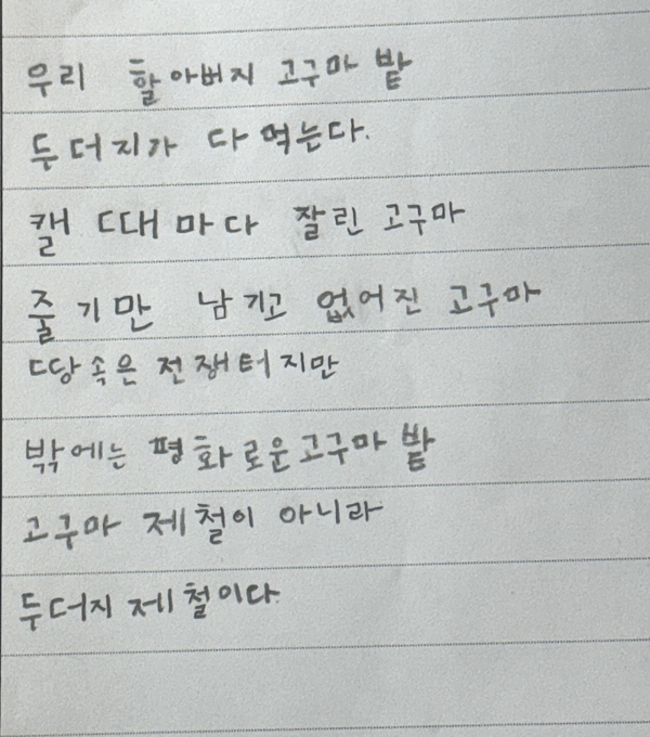 우리 할아버지 고구마 밭
두더지가 다 먹는다.
캘 때마다 잘린 고구마
줄기만 남기고 없어진 고구마
땅속은 전쟁터지만
밖에는 평화로운 고구마 밭
고구마 제철이 아니라
두더지 제철이다.